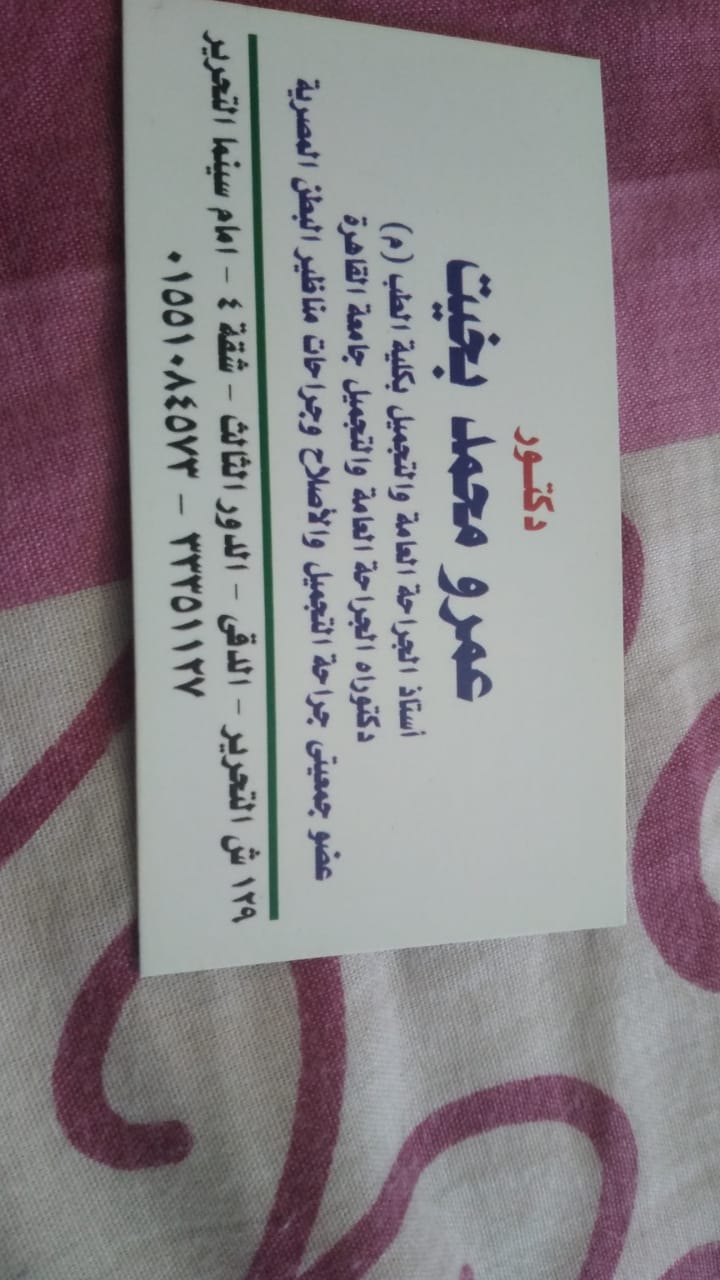 دكتور
عمرو محمد بخيت
أستاذ الجراحة العامة والتجميل بكلية الطب (م)
دكتوراه الجراحة العامة والتجميل جامعة القاهرة
عضو جمعيتى جراحة التجميل والأصلاح وجراحات مناظير البطن المصرية
١٢٩ ش التحرير - الدقى - الدور الثالث - شقة ٤ - امام سينما التحرير
٣٣٣٥١١٢٧ - ٠١٥٥١٠٨٤٥٧٣